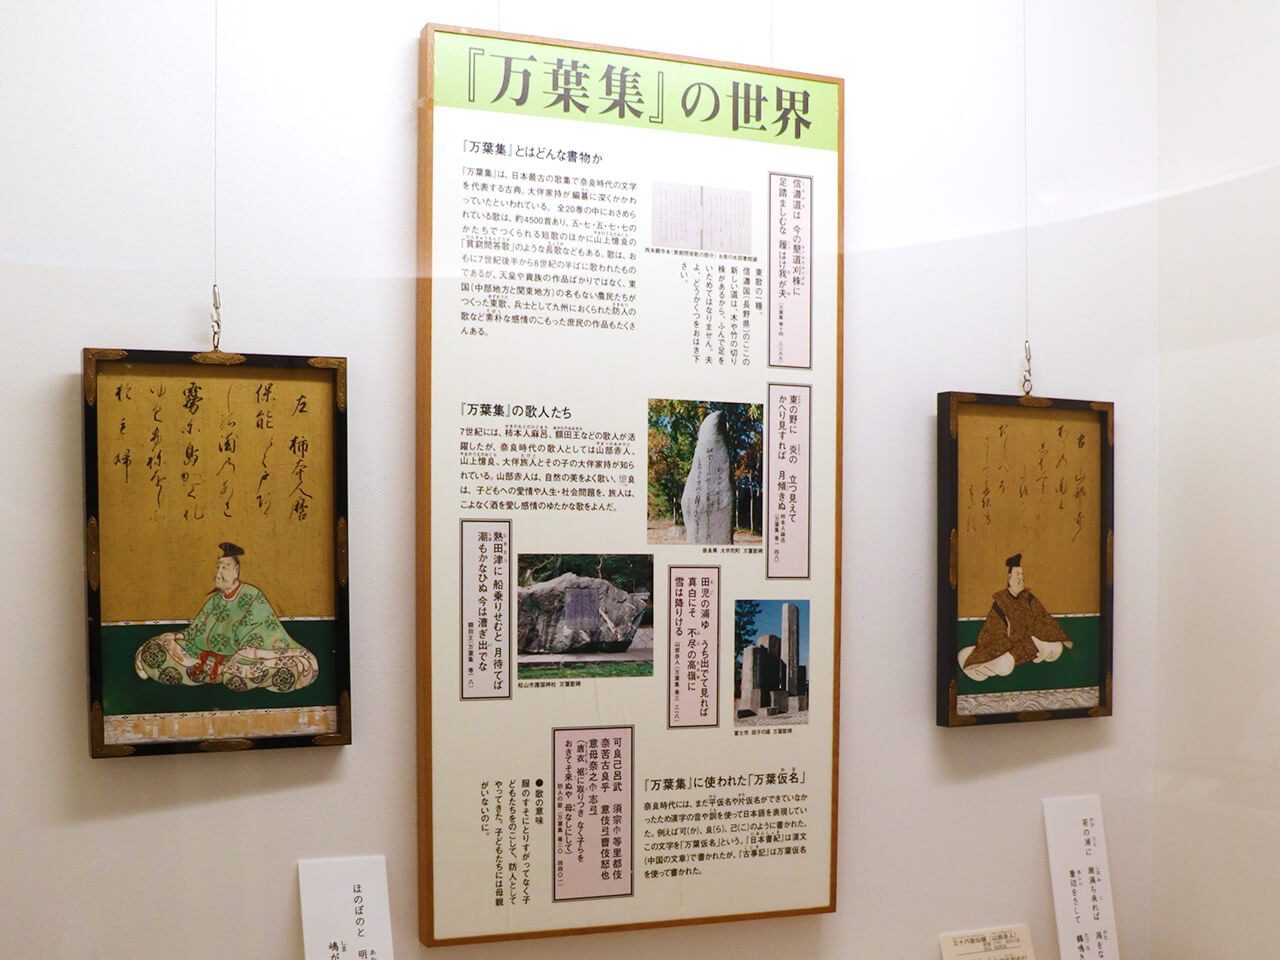 『万葉集』の世界
『万葉集』とはどんな書物か
『万葉集』は、日本最古の歌集で奈良時代の文学
を代表する古典。大伴家持が編纂に深くかかわ
っていたといわれている。全20巻の中におさめら
れている歌は、約4500首あり、五・七・五・七・七の
かたちでつくられる短歌のほかに山上憶良の
「貧窮問答歌」のような長歌などもある。歌は、お
もに7世紀後半から8世紀の半ばに歌われたもの
であるが、天皇や貴族の作品ばかりではなく、東
国(中部地方と関東地方)の名もない農民たちが
つくった東歌、兵士として九州におくられた防人の
歌など素朴な感情のこもった庶民の作品もたくさ
んある。
信濃道は 今の墾道刈株に
足踏ましむな 履はけ我が夫
(万葉集 巻十四 三三九九)
東歌の一種。
信濃国(長野県)のここの
新しい道は、木や竹の切り
株があるから、ふんで足を
いためてはなりません。夫
よ、どうかくつをおはき下
さい。
『万葉集』の歌人たち
7世紀には、柿本人麻呂、額田王などの歌人が活
躍したが、奈良時代の歌人としては山部赤人、
山上憶良、大伴旅人とその子の大伴家持が知ら
れている。山部赤人は、自然の美をよく歌い、憶良
は、子どもへの愛情や人生・社会問題を、旅人は、
こよなく酒を愛し感情のゆたかな歌をよんだ。
奈良県 大宇陀町 万葉歌碑
東の野に 炎の 立つ見えて
かへり見すれば 月傾きぬ
柿本人麻呂
(万葉集 巻一 四八)
熟田津に 船乗りせむと 月待てば
潮もかなひぬ 今は漕ぎ出でな
額田王(万葉集 巻一 八)
松山市護国神社 万葉歌碑
田児の浦ゆ うち出でて見れば
真白にそ 不尽の高嶺に
雪は降りける
山部赤人(万葉集 巻三 三一八)
富士市 田子の浦 万葉歌碑
可良己呂武 須宗尓等里都伎
奈苦古良乎 意伎弖曽伎怒也
意母奈之尓志弖
(唐衣 裾に取りつき なく子らを
おきてそ来ぬや 母なしにして)
防人の歌(万葉集 巻二〇 四四〇一)
●歌の意味
服のすそにとりすがってなく子
どもたちをのこして、防人として
やってきた。子どもたちには母親
がいないのに。
『万葉集』に使われた「万葉仮名」
奈良時代には、まだ平仮名や片仮名ができていなか
ったため漢字の音や訓を使って日本語を表現してい
た。例えば可(か)、良(ら)、己(こ)のように書かれた。
この文字を「万葉仮名」という。「日本書紀」は漢文
(中国の文章)で書かれたが、「古事記」は万葉仮名
を使って書かれた。
左 柿本人麿
ほのぼのと 明
嶋が
若の浦に 潮満ち来れば 潟をな
葦辺をさして 鶴鳴き
三十六歌仙額(山部赤人)